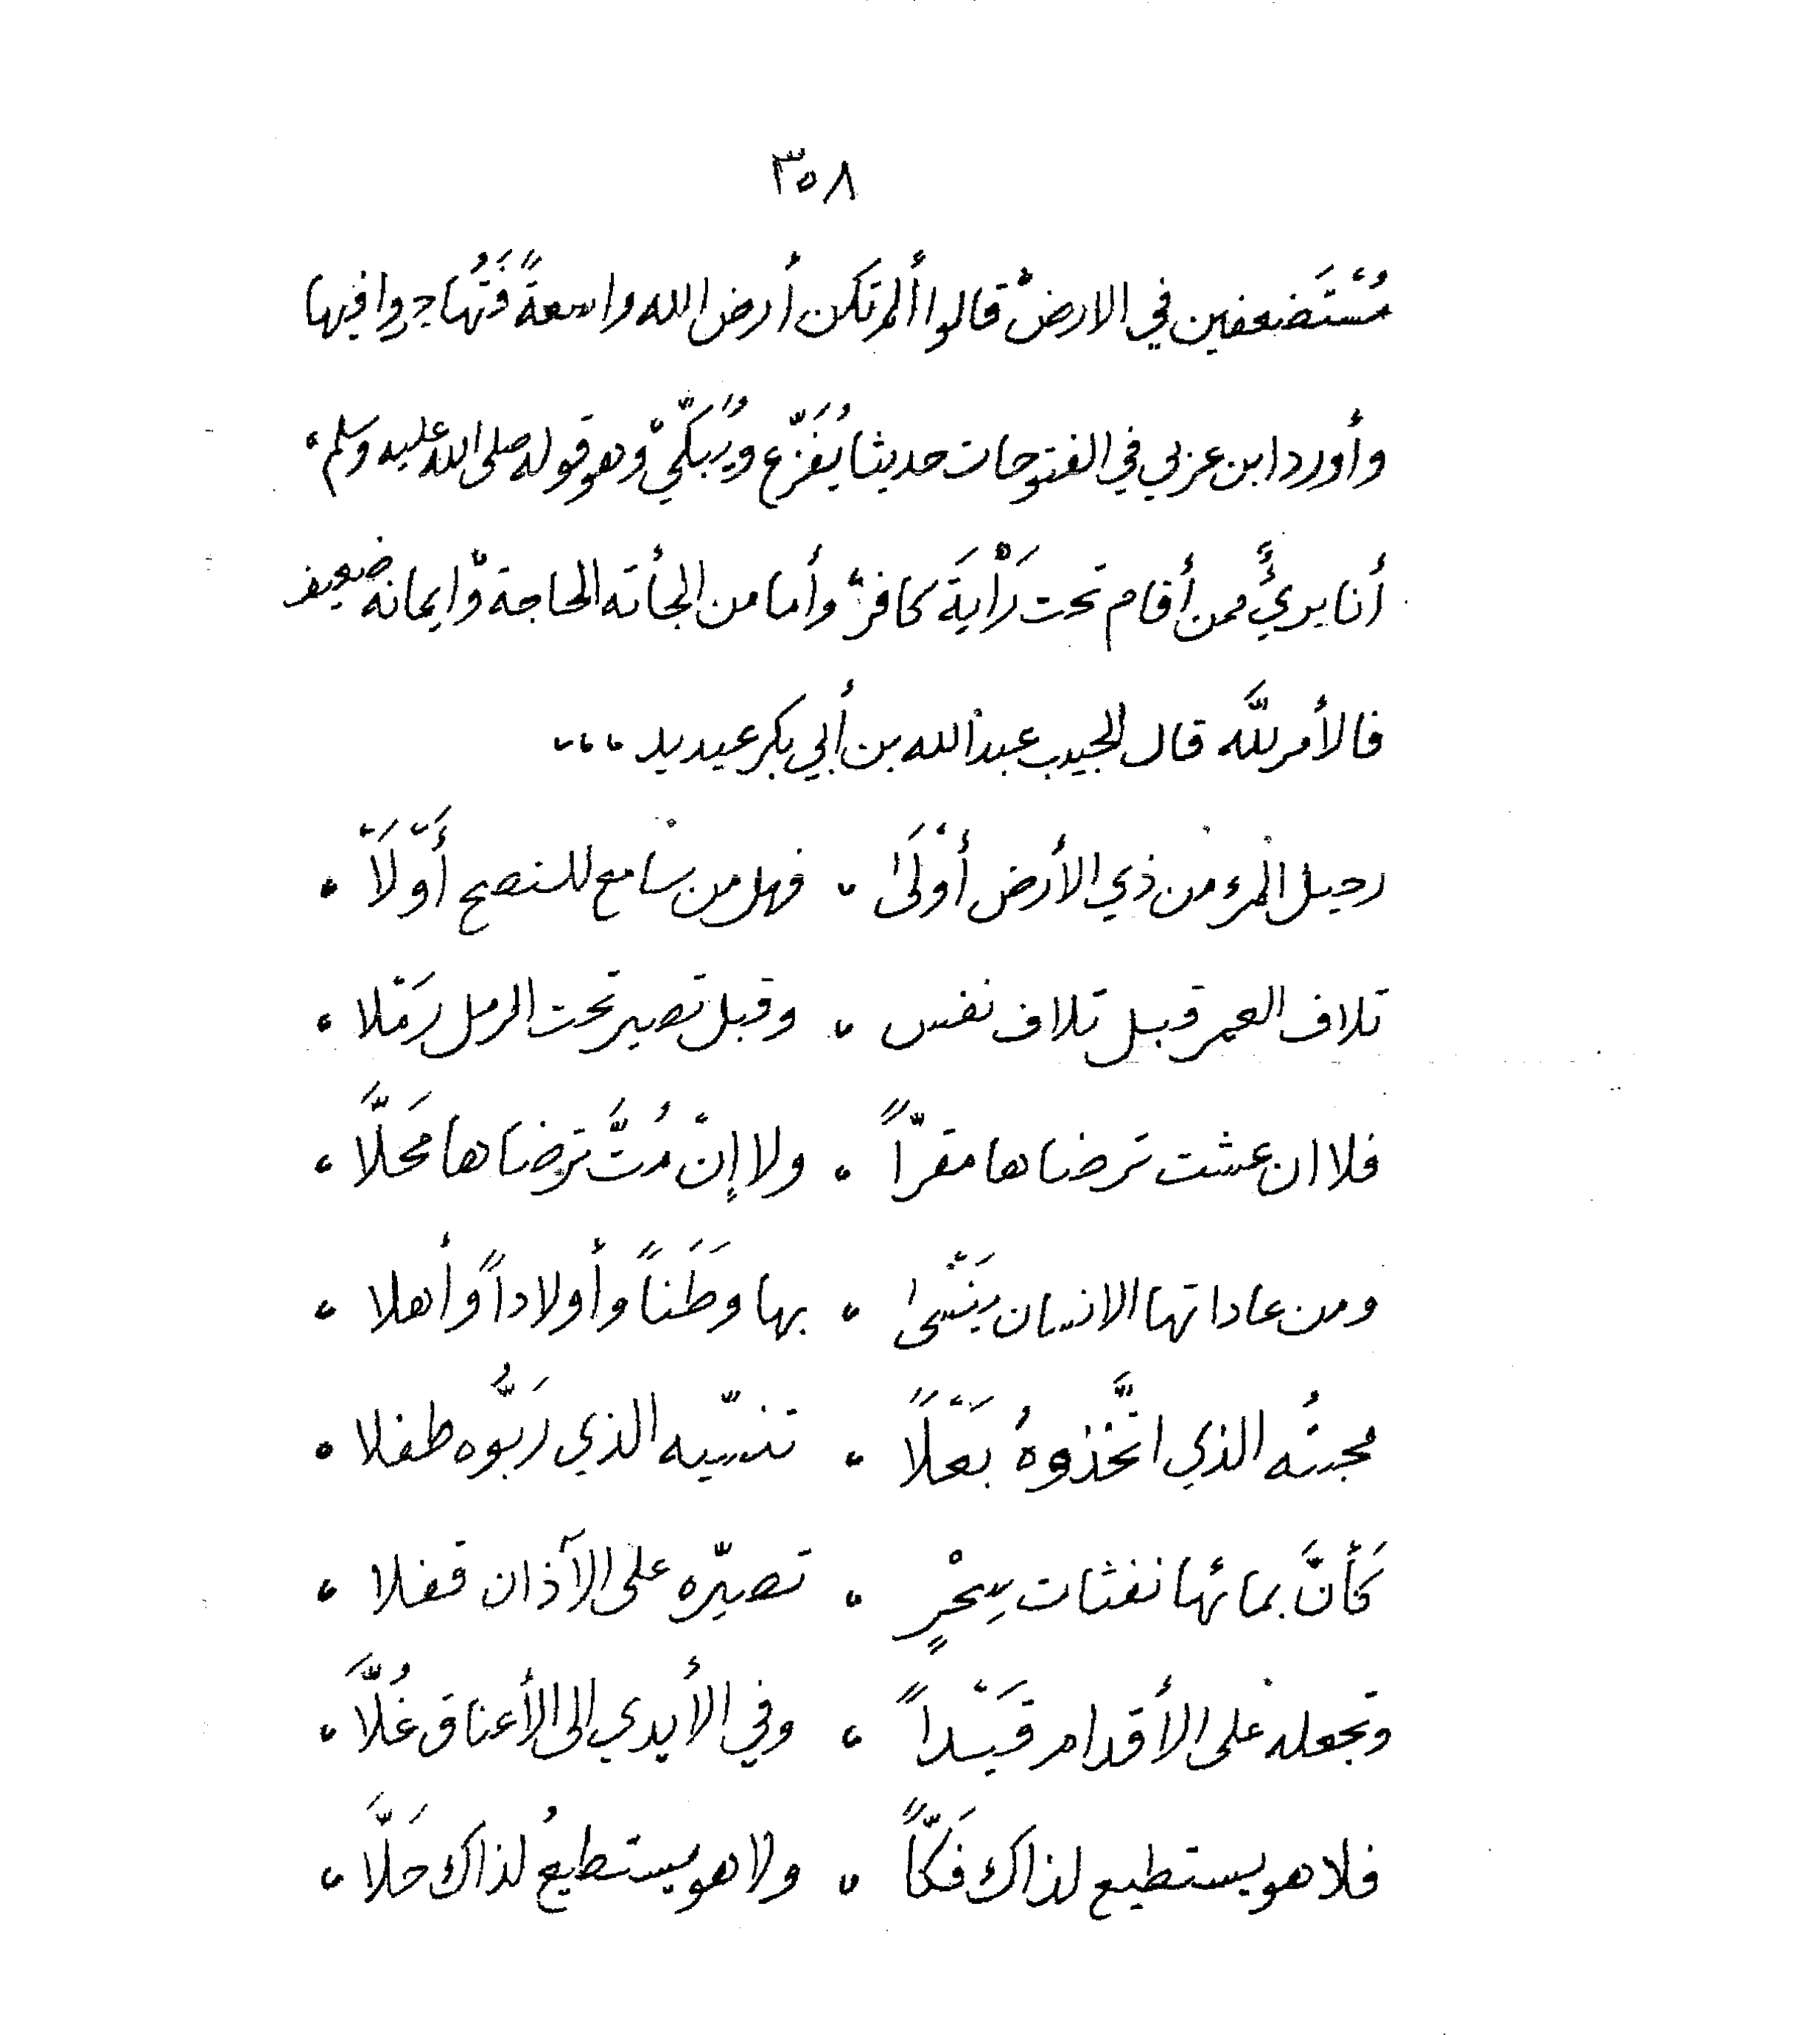 ٣٥٨
مُسْتَضعفين في الارضْ قالوا ألم تكن أرض الله واسعةً فَتُهاجروا فيها
وأورد ابن عربي في الفتوحات حديثا يُفَزّع ويُبَكّيْ وهو قوله صلى الله عليه وسلم،
أنا بريءٌ ممن أقام تحت رَأْيَةَ كافرْ وأما من الجأته الحاجة وّايمانه ضعيف
فالأمر للَّه قال الحبيب عبدالله بن أبي بكر عيديد ،،،
رحيل المرء من ذي الأرض أَوْلَىٰ ، فهل من سامع للنصح أَوّلَاْ ،
تلاف العمر قبل تلاف نفس ، وقبل تصير تحت الرمل رَمْلا ،
فلا ان عشت ترضاها مقرّاً ، ولا إِنْ مُتَّ ترضاها مَحَلَّا ،
ومن عاداتها الانسان يَنْسىٰ ، بها وطَنَاً وأولاداً وأهلا ،
محبتُه الذي اتَّخذوهُ بَعْلًا ، تنسّيه الذي رَبُّوه طفلا ،
كَأنَّ بمائها نفثات سِحْرٍ ، تصيّره على الآذان قفلا ،
وتجعله على الأقدام قَيْداً ، وفي الأيدي الى الأعناق غُلَّا ،
فلا هو يستطيع لذاك فَكّاً ، ولا هو يستطيعُ لذاك حَلَّا ،